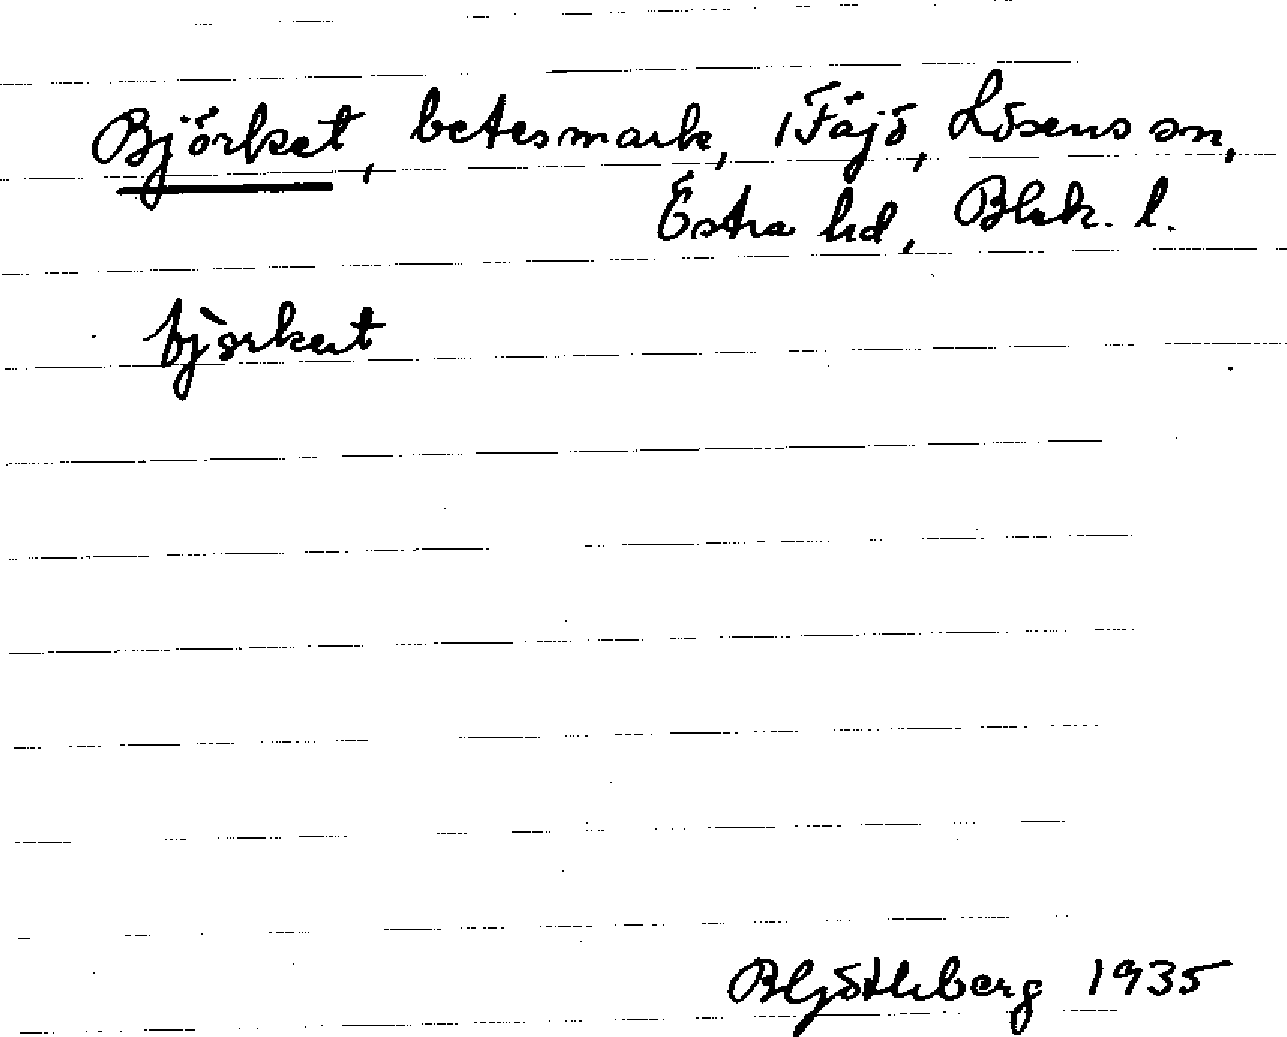 Björket, betesmark, i Fäjö, Lösens sn,
Östra hd, Blek. l.
bjòrkeət
B Götlberg 1935